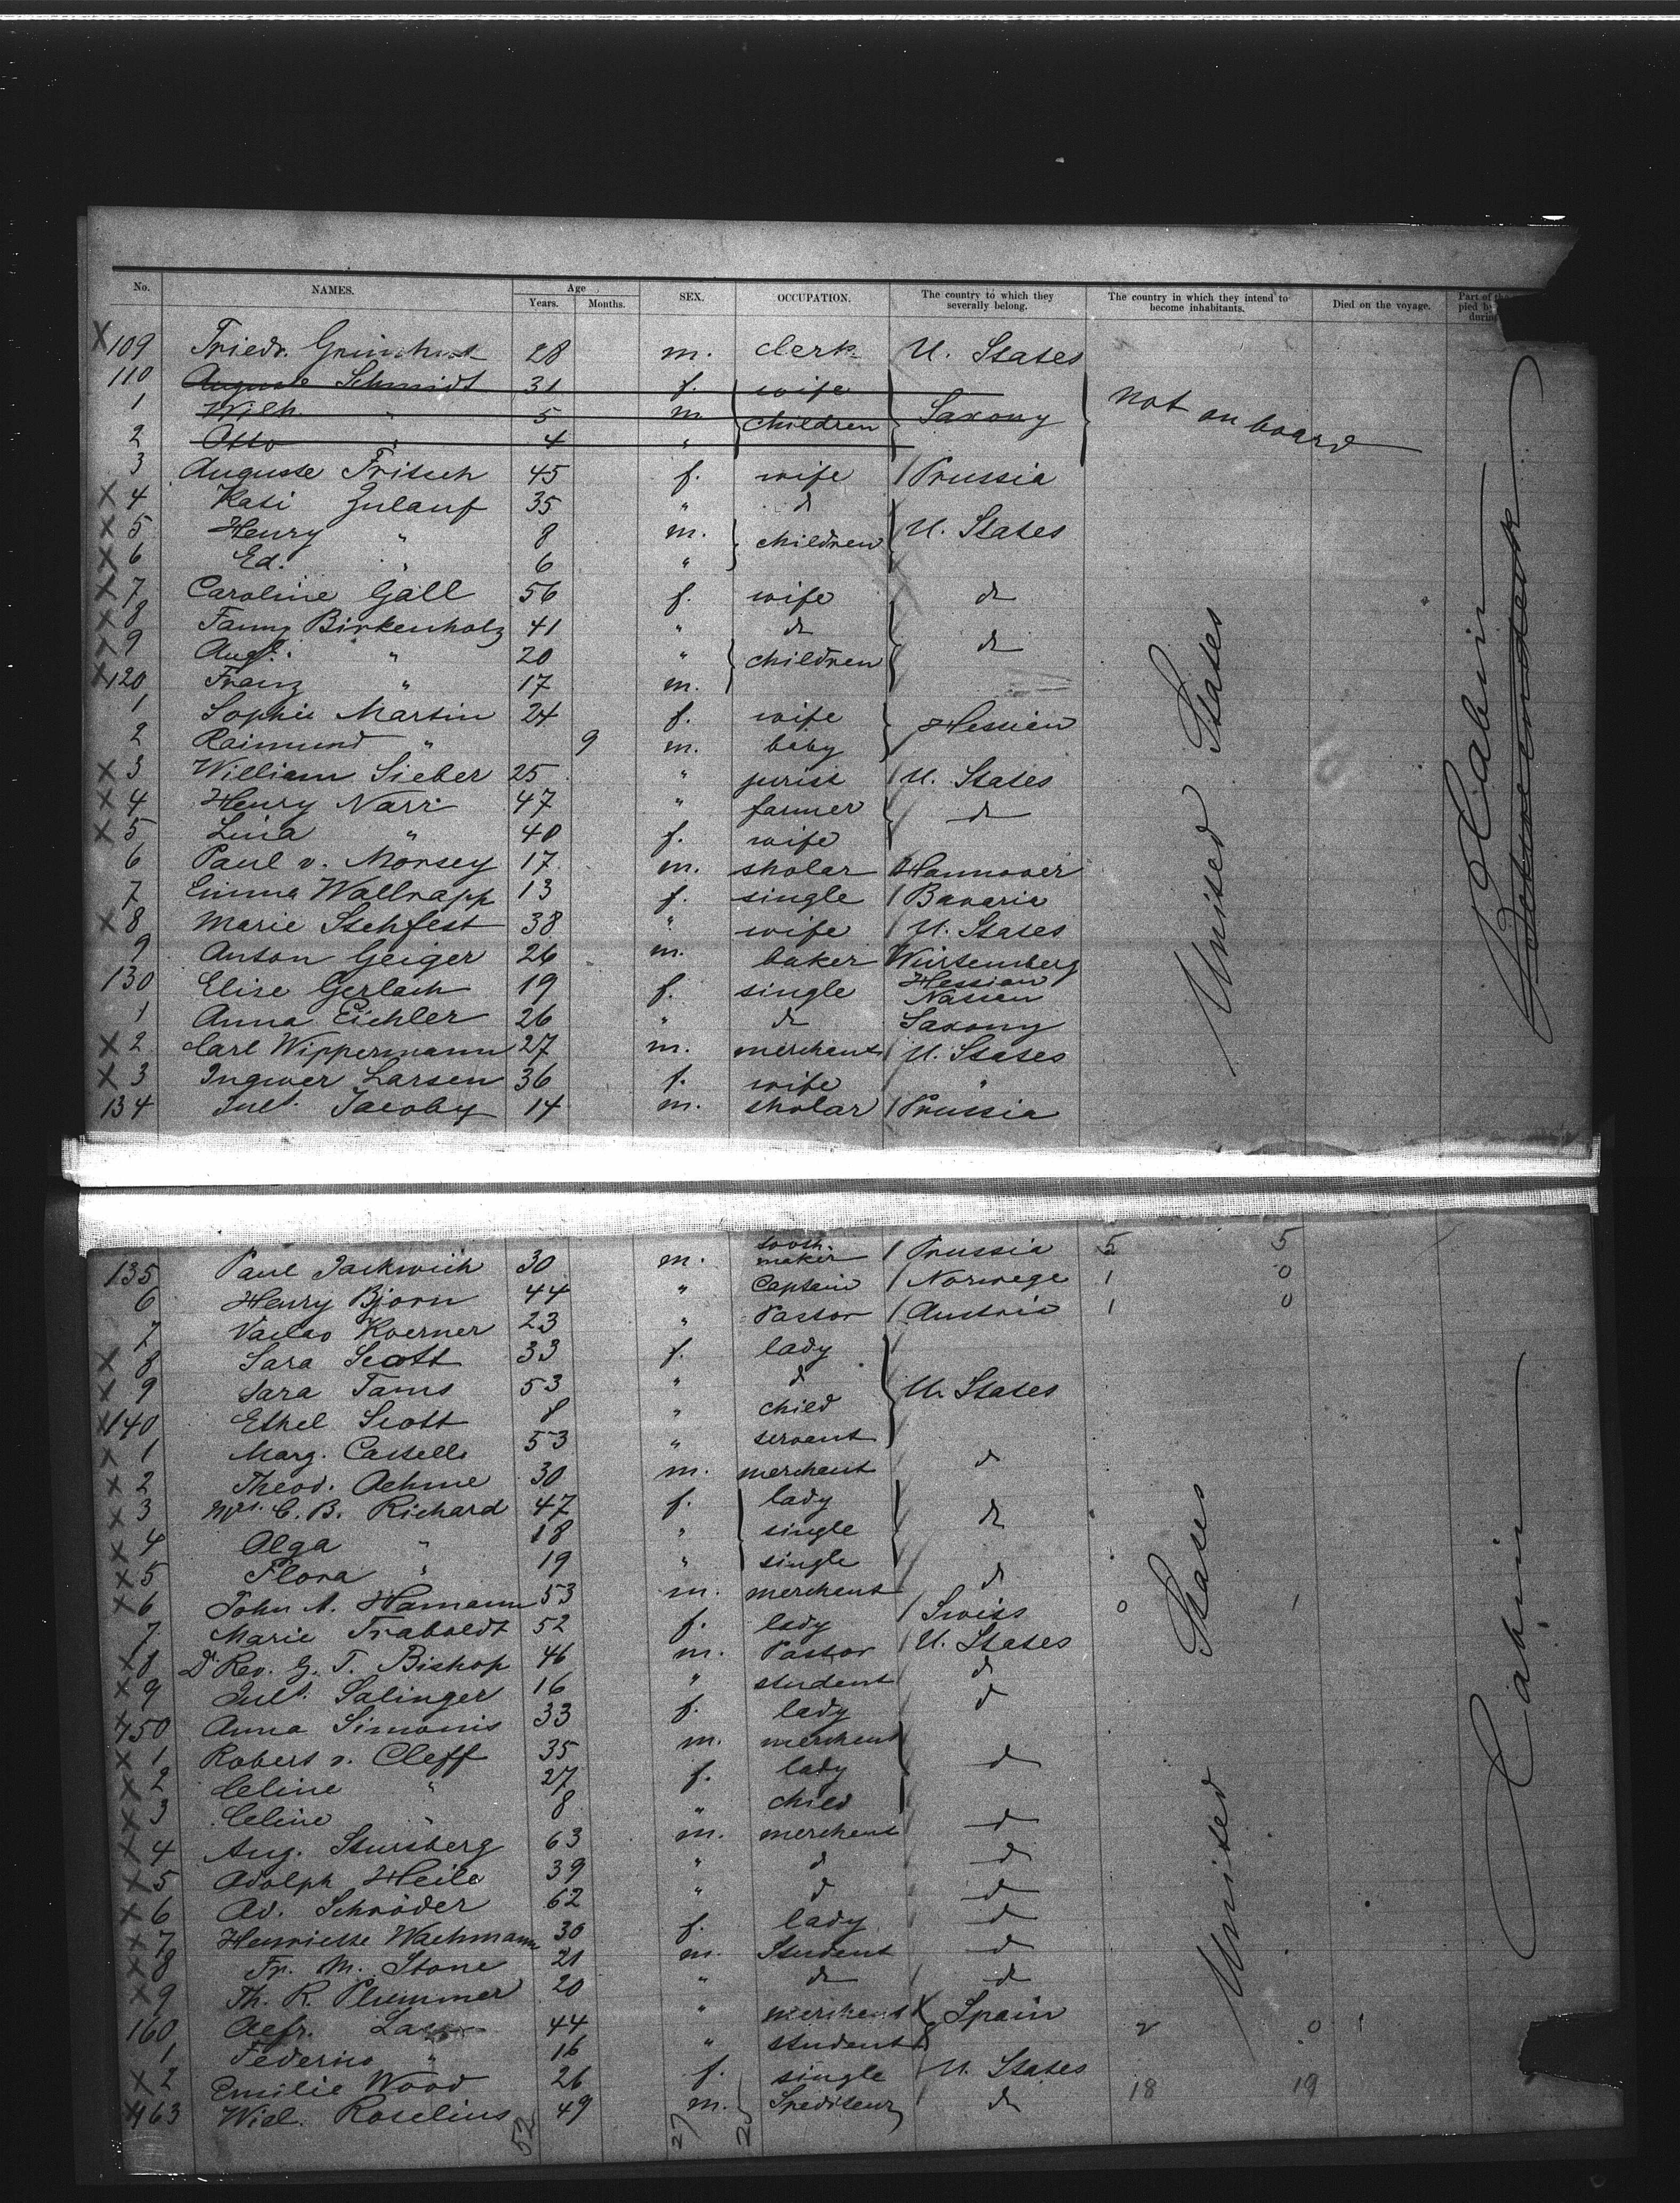 No. NAMES. Age Years. Months. SEX. OCCUPATION. The country to which they severally belong. The country in which they intend to become inhabitants. Died on the voyage. Part of the pied by during
X 109 Friedr. 28 m. clerk U. States
110 Auguste Schmidt 31 f. wife
1 Wilh. " 5 m. children Saxony not on board
2 Otto " 4 "
3 Auguste Fritsch 45 f. wife / Prussia
X 4 Kati Zulauf 35 " d
X 5 Henry " 8 m. children U. States
X 6 Ed. " 6 "
X 7 Caroline Gall 56 f. wife do
X 8 Fanny Birkenholz 41 " do
X 9 Aug. " 20 " children do
X 120 Franz " 17 m.
1 Sophie Martin 24 f. wife Hessien
2 Raimund " 9 m. baby
X 3 William Sieber 25 " jurist / U. States
X 4 Henry Narr 47 " farmer do
X 5 Lina " 40 f. wife
6 Paul v. Morsey 17 m. sholar Hannover
7 Emma Wallrapp 13 f. single / Bavaria
X 8 Marie Stehfest 38 " wife / U. States
9 Anton Geiger 26 m. baker Würtemberg
130 Elise Gerlach 19 f. single Hessian Nassau
1 Anna Eichler 26 " do Saxony
X 2 Carl Wippermann 27 m. merchant / U. States
X 3 Ingwer Larsen 36 f. wife "
134 Jul. Jacoby 14 m. sholar / Prussia
United States
Cabin
135 Paul Jackwich 30 m. maker / Prussia 5 5
6 Henry Bjorn 44 " Captain / Norwege 1 0
7 Vaclav Koerner 23 " Pastor / Austria 1 0
X 8 Sara Scott 33 f. lady
X 9 Sara Tams 53 " d U. States
X 140 Ethel Scott 8 " child
X 1 Marg. Cassells 53 " servant
X 2 Theod. Oehme 30 m. merchant d
X 3 Mrs. C. B. Richard 47 f. lady
X 4 Olga " 18 " single do
X 5 Flora " 19 " single
X 6 John A. Hamann 53 m. merchant d
7 Marie Traboldt 52 f. lady / Swiss 0 1
X 8 Dr Rev. G. T. Bishop 46 m. Pastor / U. States
X 9 Jul. Salinger 16 " student d
X 150 Anna Simonis 33 f. lady d
X 1 Robert v. Cleff 35 m. merchant
X 2 Celine " 27 f. lady d
X 3 Celine " 8 " child
X 4 Aug. Stursberg 63 m. merchant d
X 5 Adolph Heile 39 " d d
X 6 Ad. Schröder 62 " d d
X 7 Henriette Wachmann 30 f. lady d
X 8 Fr. M. Stone 21 m. Student d
X 9 Th. R. Plummer 20 " do d
160 Alfr. 44 " merchant Spain 2 0
1 Federico " 16 " student
X 2 Emilie Wood 26 f. single U. States
X 163 Wil. Roselius 49 m. Spediteur do 18 19
52 27
United States
Cabin